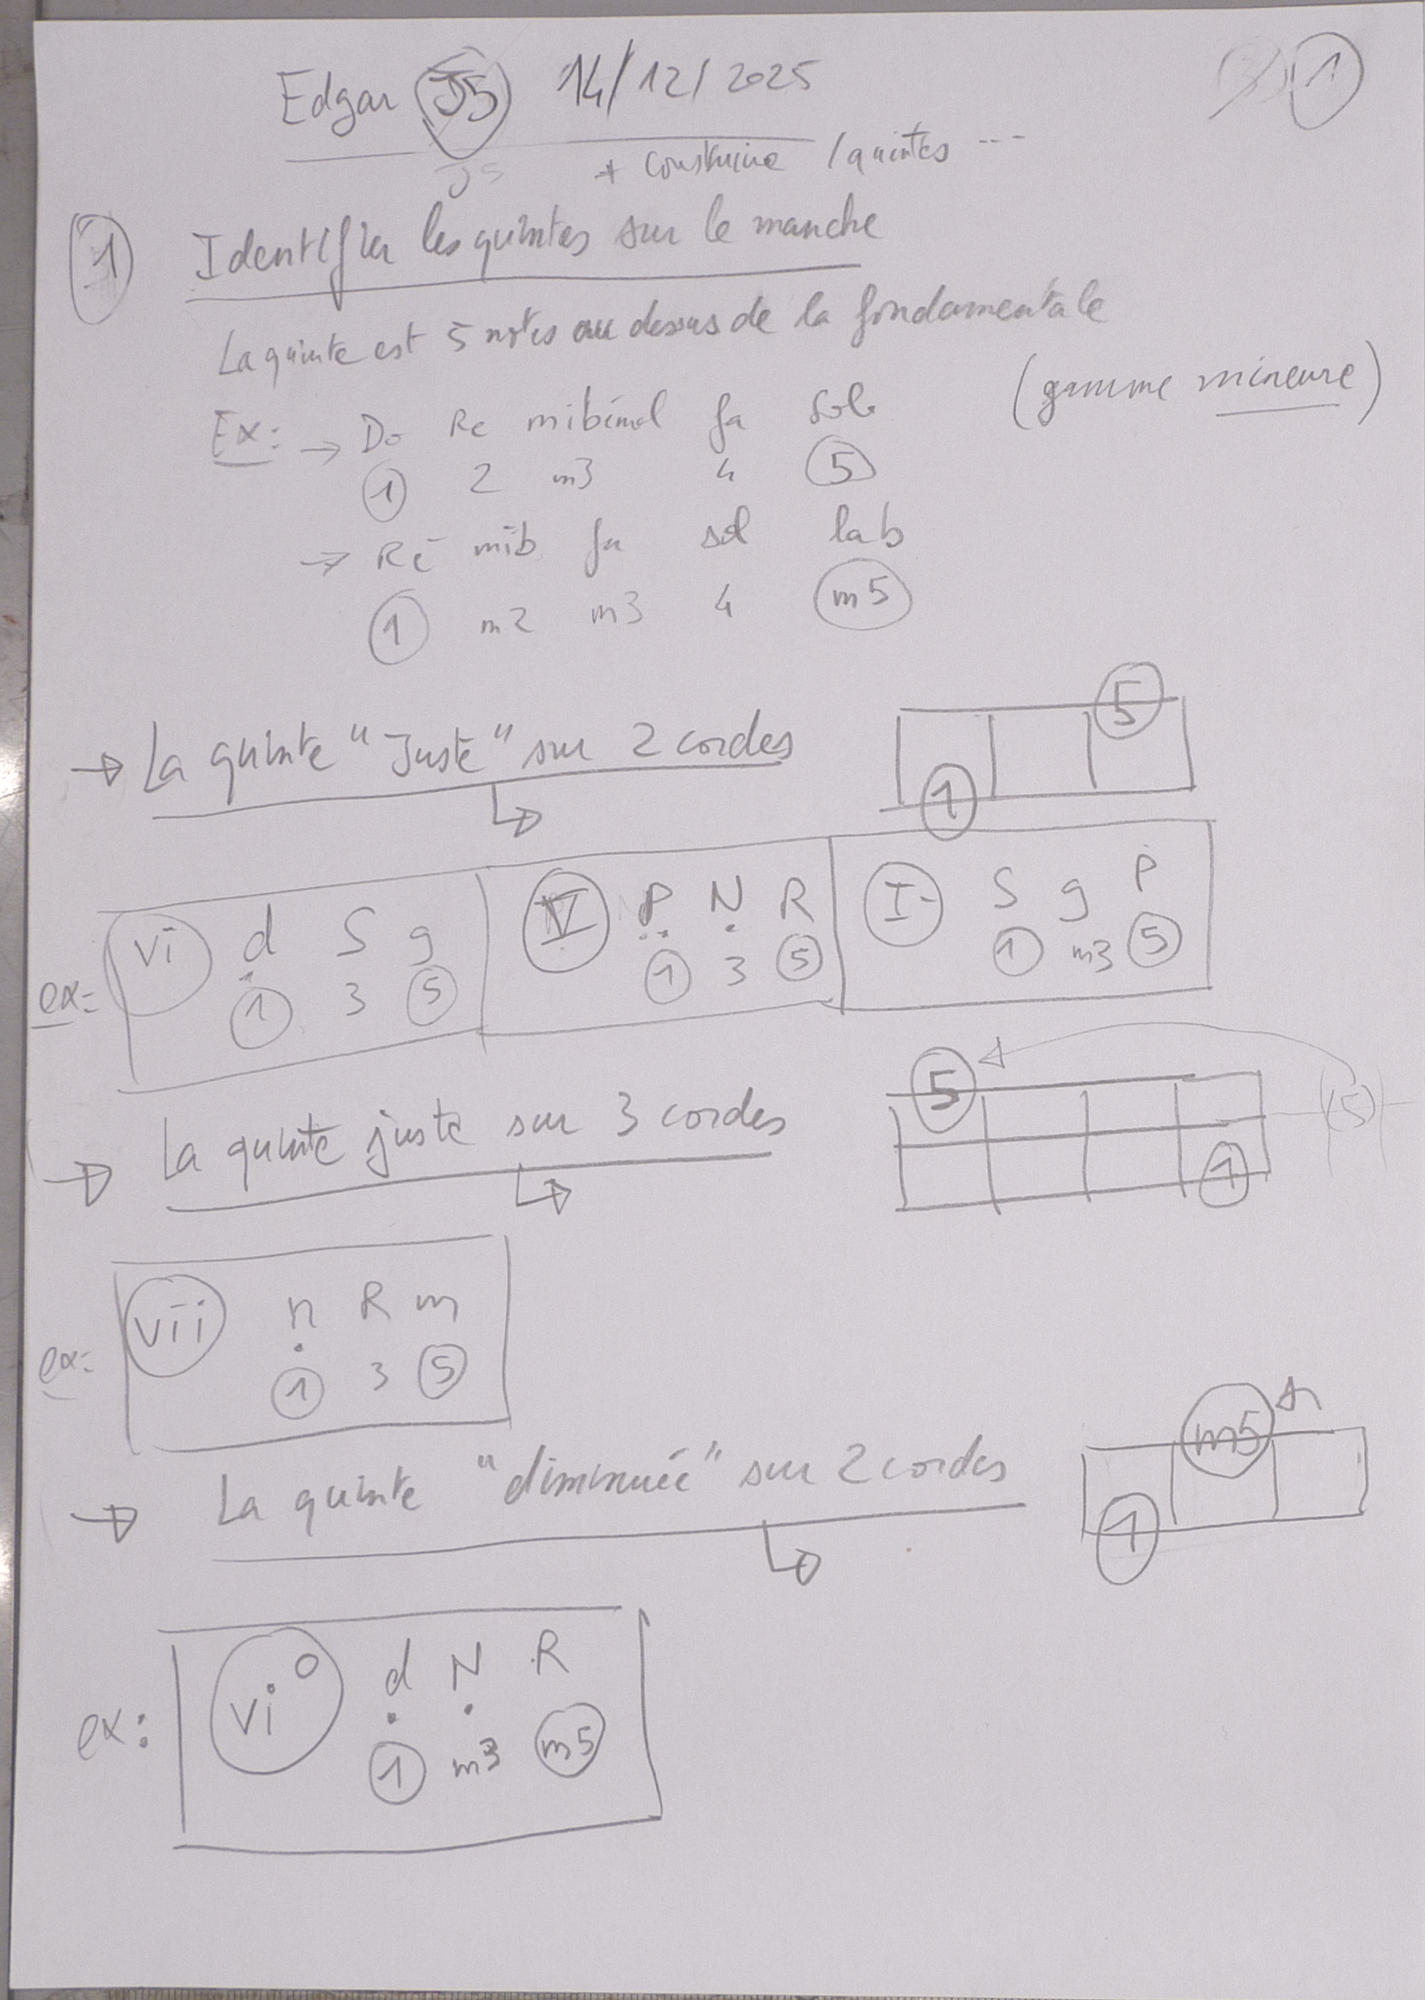 Edgar J5 14/12/2025 1
J5 + construire / quintes ...
1 Identifier les quintes sur le manche
La quinte est 5 notes au dessus de la fondamentale
(gamme mineure)
Ex: → Do Re mi bémol fa sol
1 2 m3 4 5
→ Ré mib fa sol lab
1 m2 m3 4 m5
→ La quinte "Juste" sur 2 cordes
5
1
ex: vi d S g IV P N R I- S g P
1 3 5 1 3 5 1 m3 5
→ La quinte juste sur 3 cordes
5 (5)
1
ex: vii n R m
1 3 5
→ La quinte "diminuée" sur 2 cordes
m5
1
ex: vi° d N R
1 m3 m5